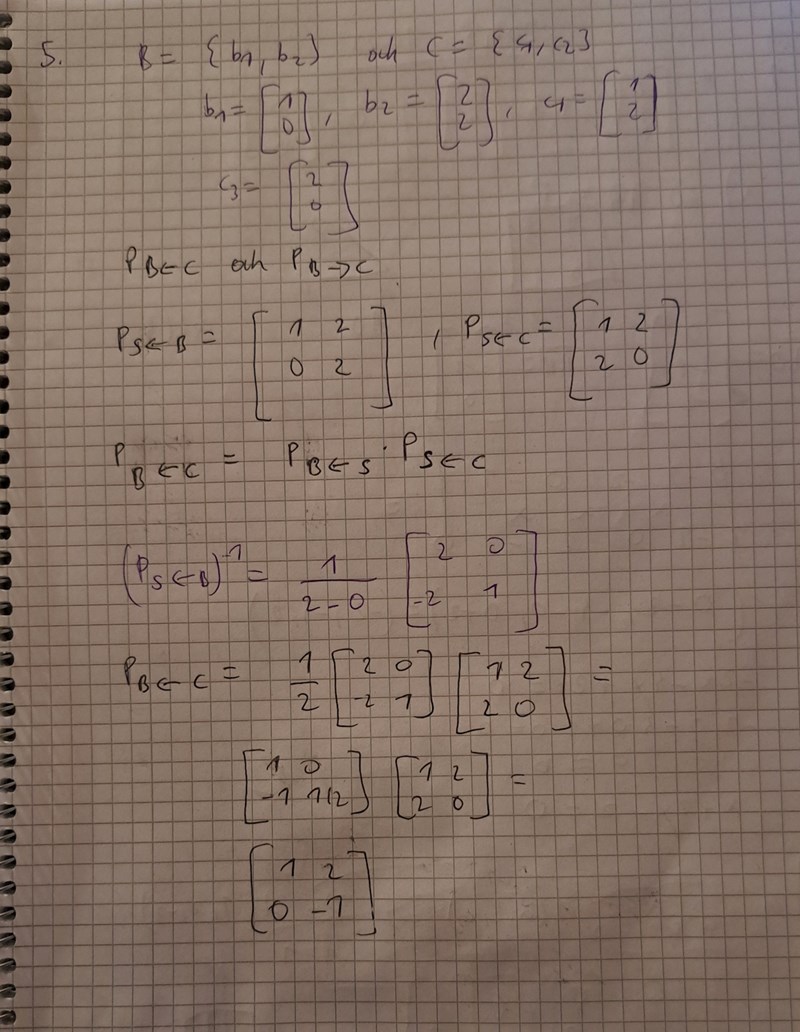 5. B = {b1, b2} och C = {c1, c2}
b1 = [1 0], b2 = [2 2], c1 = [1 2]
c3 = [2 0]
P B←C och P B→C
P S←B = [1 2; 0 2], P S←C = [1 2; 2 0]
P B←C = P B←S · P S←C
(P S←B)^-1 = 1/(2-0) [2 0; -2 1]
P B←C = 1/2 [2 0; -2 1] [1 2; 2 0] =
[1 0; -1 1/2] [1 2; 2 0] =
[1 2; 0 -1]